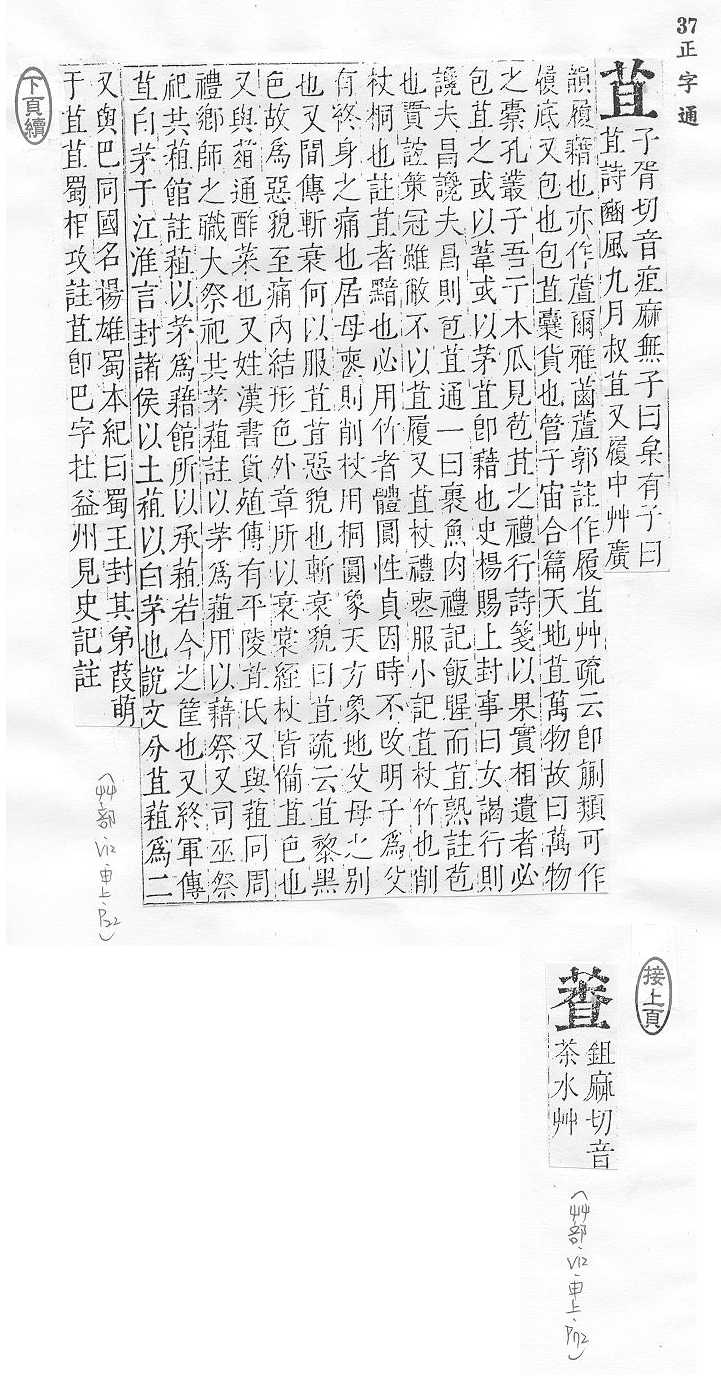 37 正字通
苴
子胥切音疽麻無子曰枲有子曰
苴詩豳風九月叔苴又履中艸廣
韻履藉也亦作蒩爾雅菡蒩郭註作履苴艸疏云卽蒯類可作
履底又包也包苴囊貨也管子宙合篇天地苴萬物故曰萬物
之橐孔叢子吾于木瓜見苞苴之禮行詩箋以果實相遺者必
包苴之或以葦或以茅苴卽藉也史楊賜上封事曰女謁行則
讒夫昌讒夫昌則苞苴通一曰裹魚肉禮記飯腥而苴熟註苞
也賈誼策冠雖敝不以苴履又苴杖禮喪服小記苴杖竹也削
杖桐也註苴者黯也必用竹者體圓性貞因時不改明子爲父
有終身之痛也居母喪則削杖用桐圓象天方象地父母之别
也又閒傳斬衰何以服苴苴惡貌也斬衰貌曰苴疏云苴黎黑
色故爲惡貌至痛內結形色外章所以衰裳絰杖皆備苴色也
又與葅通酢菜也又姓漢書貨殖傳有平陵苴氏又與蒩同周
禮鄉師之職大祭祀共茅蒩註以茅爲蒩用以藉祭又司巫祭
祀共蒩館註蒩以茅爲藉館所以承蒩若今之筐也又終軍傳
苴白茅于江淮言封諸侯以土蒩以白茅也說文分苴蒩爲二
又與巴同國名揚雄蜀本紀曰蜀王封其弟葭萌
于苴苴蜀相攻註苴卽巴字在益州見史記註
下頁續
(艸部.V12.申上.P22)
接上頁
鉏麻切音
茶水艸
(艸部.V12.申上.P72)